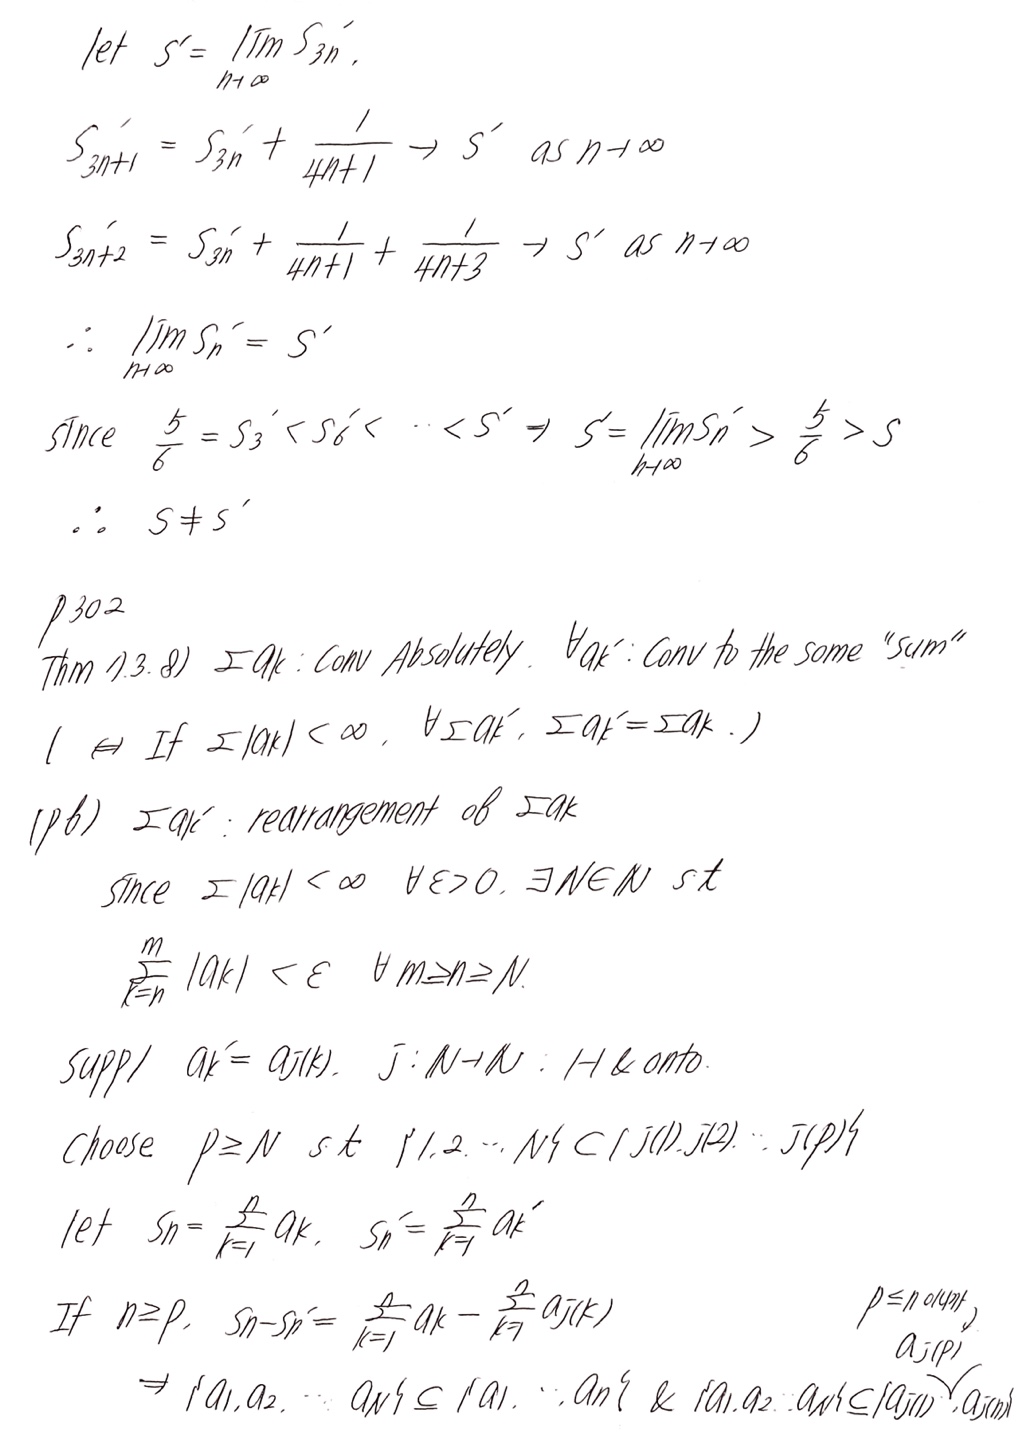 let S' = lim S3n'.
n→∞
S3n+1' = S3n' + 1/(4n+1) → S' as n→∞
S3n+2' = S3n' + 1/(4n+1) + 1/(4n+3) → S' as n→∞
∴ lim Sn' = S'
n→∞
since 5/6 = S3' < S6' < ‥ < S' ⇒ S' = lim Sn' > 5/6 > S
n→∞
∴ S ≠ S'
p302
Thm 7.3.8) Σak : Conv Absolutely. ∀ak' : Conv to the some "sum"
( ⇔ If Σ|ak| < ∞, ∀Σak', Σak' = Σak. )
(pf) Σak' : rearrangement of Σak
since Σ|ak| < ∞ ∀ε>0. ∃N∈ℕ st
Σ_{k=n}^{m} |ak| < ε ∀ m≥n≥N.
Supp/ ak' = aj(k). j : ℕ→ℕ : 1-1 & onto.
Choose p≥N s.t {1.2. ‥ N} ⊂ {j(1).j(2). ‥ j(p)}
let Sn = Σ_{k=1}^{n} ak, Sn' = Σ_{k=1}^{n} ak'
If n≥p. Sn-Sn' = Σ_{k=1}^{n} ak - Σ_{k=1}^{n} aj(k)
p≤n 이니까,
aj(p)
⇒ {a1,a2. ‥ aN} ⊆ {a1. ‥. an} & {a1.a2. ‥ aN} ⊆ {aj(1) ‥ aj(n)}